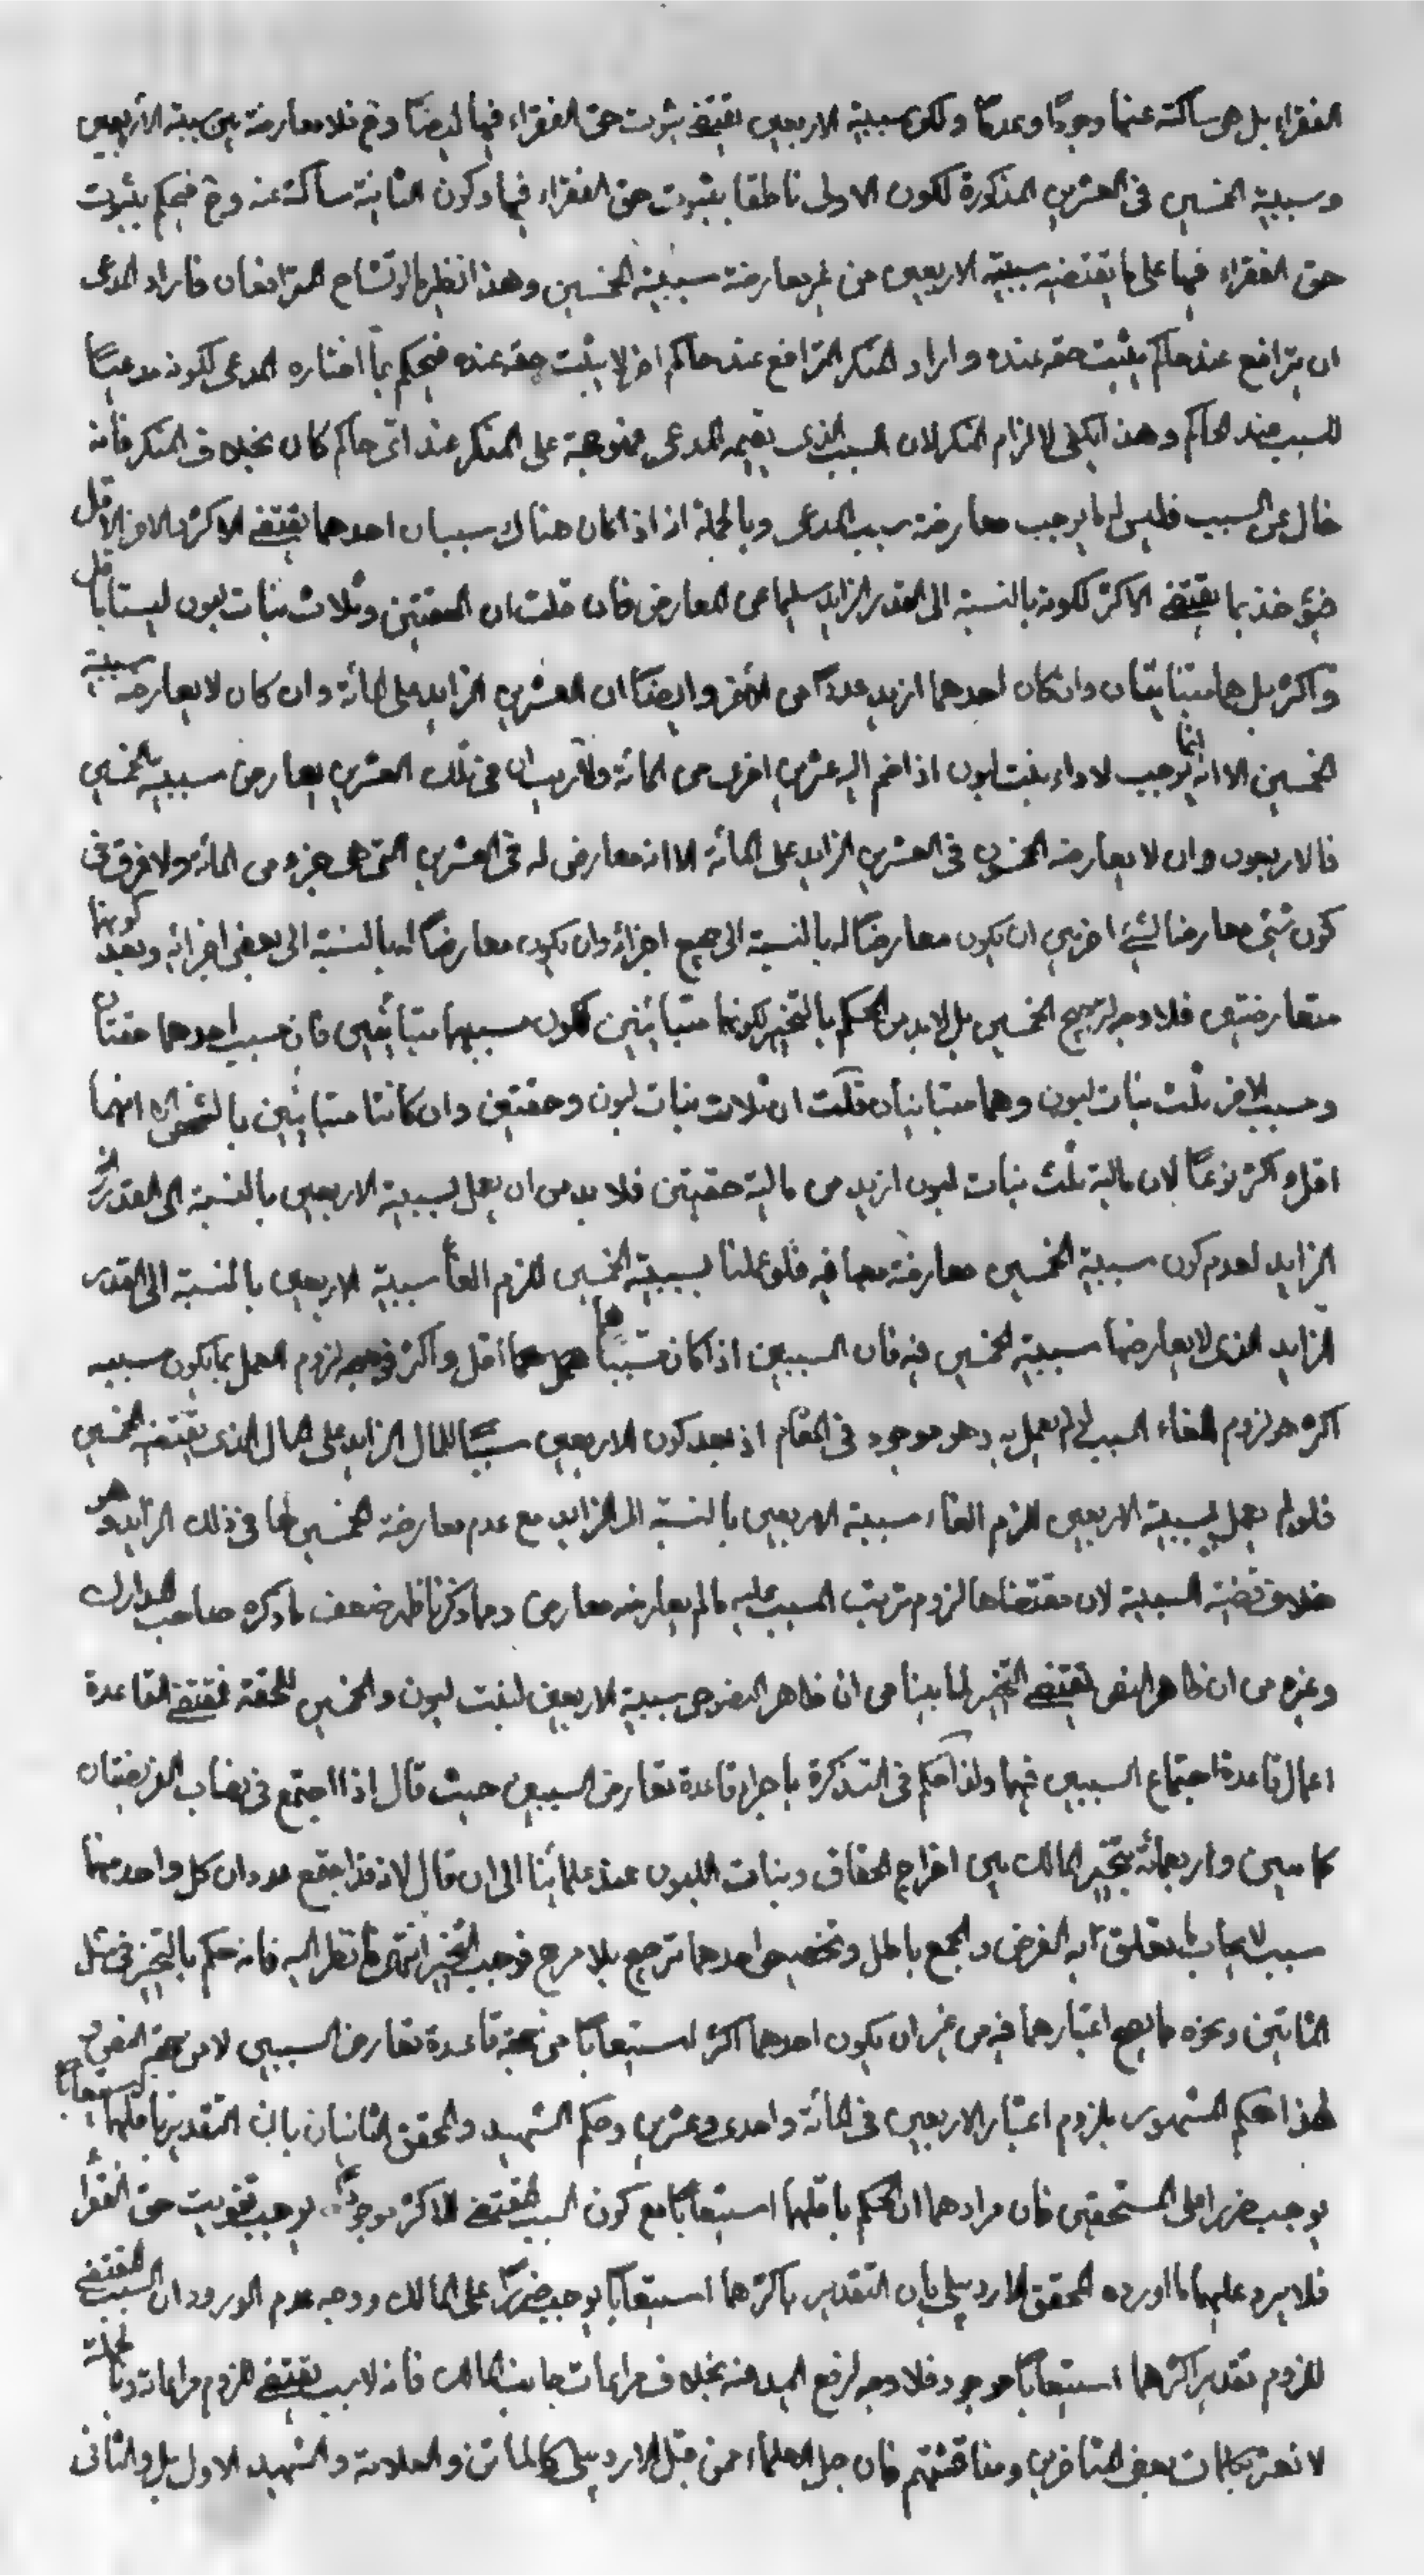 الفقراء بل هى ساكتة عنها وجودًا وعدمًا ولكن سببية الاربعين تقتضى ثبوت حق الفقراء فيها ايضًا وح فلا معارضة بين سببية الأربعين
وسببية الخمسين فى العشرين المذكورة لكون الاولى ناطقا بثبوت حق الفقراء فيها وكون الثانية ساكتة عنه وح فيحكم بثبوت
حق الفقراء فيها على ما يقتضيه سببية الاربعين من غير معارضة سببية الخمسين وهذا نظير ما لو تشاح المترافعان فاراد المدعى
ان يترافع عند حاكم يثبت حقه عنده واراد المنكر الترافع عند حاكم اخر لا يثبت حقه عنده فيحكم بما اختاره المدعى لكونه مدعيًا
للسبب عند الحاكم وهذا يكفى لالزام المنكر لان السبب الذى يقيمه المدعى متوجهة على المنكر عند اى حاكم كان بخلاف المنكر فأنه
خال عن السبب فليس له ما يوجب معارضة سبب المدعى وبالجملة اذ اذا كان هناك سببان احدهما يقتضى الاكثر والاخر الاقل
فيؤخذ بما يقتضى الاكثر لكونه بالنسبة الى القدر الزايد سليما عن المعارض فان قلت ان الحقتين وثلاث بنات لبون ليستا باقل
واكثر بل هما متباينتان وان كان احدهما ازيد عددًا من الأخر وايضًا ان العشرين الزايد على المائة وان كان لا يعارضه سببية
الخمسين الا انه انما يوجب لاداء بنت لبون اذا ضم اليه عشرين اخرى من المائة ولا ريب ان فى تلك العشرين يعارض سببية الخمسين
فالاربعون وان لا يعارضه الخمسون فى العشرين الزايد على المائة الا انه معارض له فى العشرين التى هى جزء من المائة ولا فرق فى
كون شئ معارضا لشئ اخر بين ان يكون معارضًا له بالنسبة الى جميع اجزائه وان يكون معارضًا له بالنسبة الى بعض اجزائه وبعد كونهما
متعارضتين فلا وجه لترجيح الخمسين بل لابد من الحكم بالتخيير لكونهما متباينين لكون مسببهما متباينين فان مسبب احدهما حقتان
ومسبب الاخر ثلث بنات لبون وهما متباينان قلت ان ثلاث بنات لبون وحقتين وان كانتا متباينين بالشخص الا انهما
اقل واكثر نوعًا لان مالية ثلث بنات لبون ازيد من مالية حقيتين فلا بد من ان يعمل بسببية الاربعين بالنسبة الى القدر
الزايد لعدم كون سببية الخمسين معارضة معها فيه فلو عملنا بسببية الخمسين للزم الغأ سببية الاربعين بالنسبة الى القدر
الزايد الذى لا يعارضها سببية الخمسين فيه فان السببين اذا كان مسببا هما اقل واكثر فوجه لزوم العمل بما يكون سببيه
اكثر هو لزوم الغاء السبب لو لم يعمل به وهو موجود فى المقام اذ بعد كون الاربعين سببًا للمال الزايد على المال الذى يقتضيه الخمسين
فلو لم يعمل بسببية الاربعين للزم الغاء سببية الاربعين بالنسبة الى الزايد مع عدم معارضة الخمسين لها فى ذلك الزايد وهو
خلاف قضية السببية لان مقتضاها لزوم ترتب المسبب عليه ما لم يعارضه معارض ومما ذكرنا ظهر ضعف ما ذكره صاحب المدارك
وغيره من ان ظاهر النص يقتضى التخيير لما بينا من ان ظاهر النصوص سببية الاربعين لبنت لبون والخمسين للحقة فمقتضى القاعدة
اعمال قاعدة اجتماع السببين فيها ولذا حكم فى التذكرة باجراء قاعدة تعارض السببين حيث قال اذا اجتمع فى نصاب الفريضتان
كمأتين واربعمائة يتخير المالك بين اخراج الحقاق وبنات اللبون عند علمائنا الى ان قال لانه قد اجتمع عددان كل واحد منهما
سبب لايجاب ما يتعلق به الفرض والجمع باطل وتخصيص احدهما ترجيح بلا مرجح فوجب التخيير انتهى فانظر اليه فانه حكم بالتخيير فى مثل
المأتين ونحوه مما يصح اعتبارهما فيه من غير ان يكون احدهما اكثر استيعابًا من جهة قاعدة تعارض السببين لا من جهة النص و
لهذا حكم المشهور بلزوم اعتبار الاربعين فى المائة واحدى وعشرين وحكم الشهيد والمحقق الثانيان بان التقدير باقلهما استيعابًا
يوجب ضررا على المستحقين فان مرادهما ان الحكم باقلهما استيعابًا مع كون السبب المقتضى للاكثر موجودًا يوجب تفويت حق الفقراء
فلا يرد عليهما ما اورده المحقق الاردبيلى بان التقدير باكثرهما استيعابًا يوجب ضررًا على المالك ووجه عدم الورود ان السبب المقتضى
للزوم تقدير اكثرهما استيعابًا موجود فلا وجه لرفع اليد عنه بخلاف مراعات جانب المالك فأنه لا سبب يقتضى للزوم مراعاته
لا تغتر بكلمات بعض المتأخرين ومناقشتهم فان جل العلماء من قبل الاردبيلى كالماتن والعلامة والشهيد الاول بل والثانى